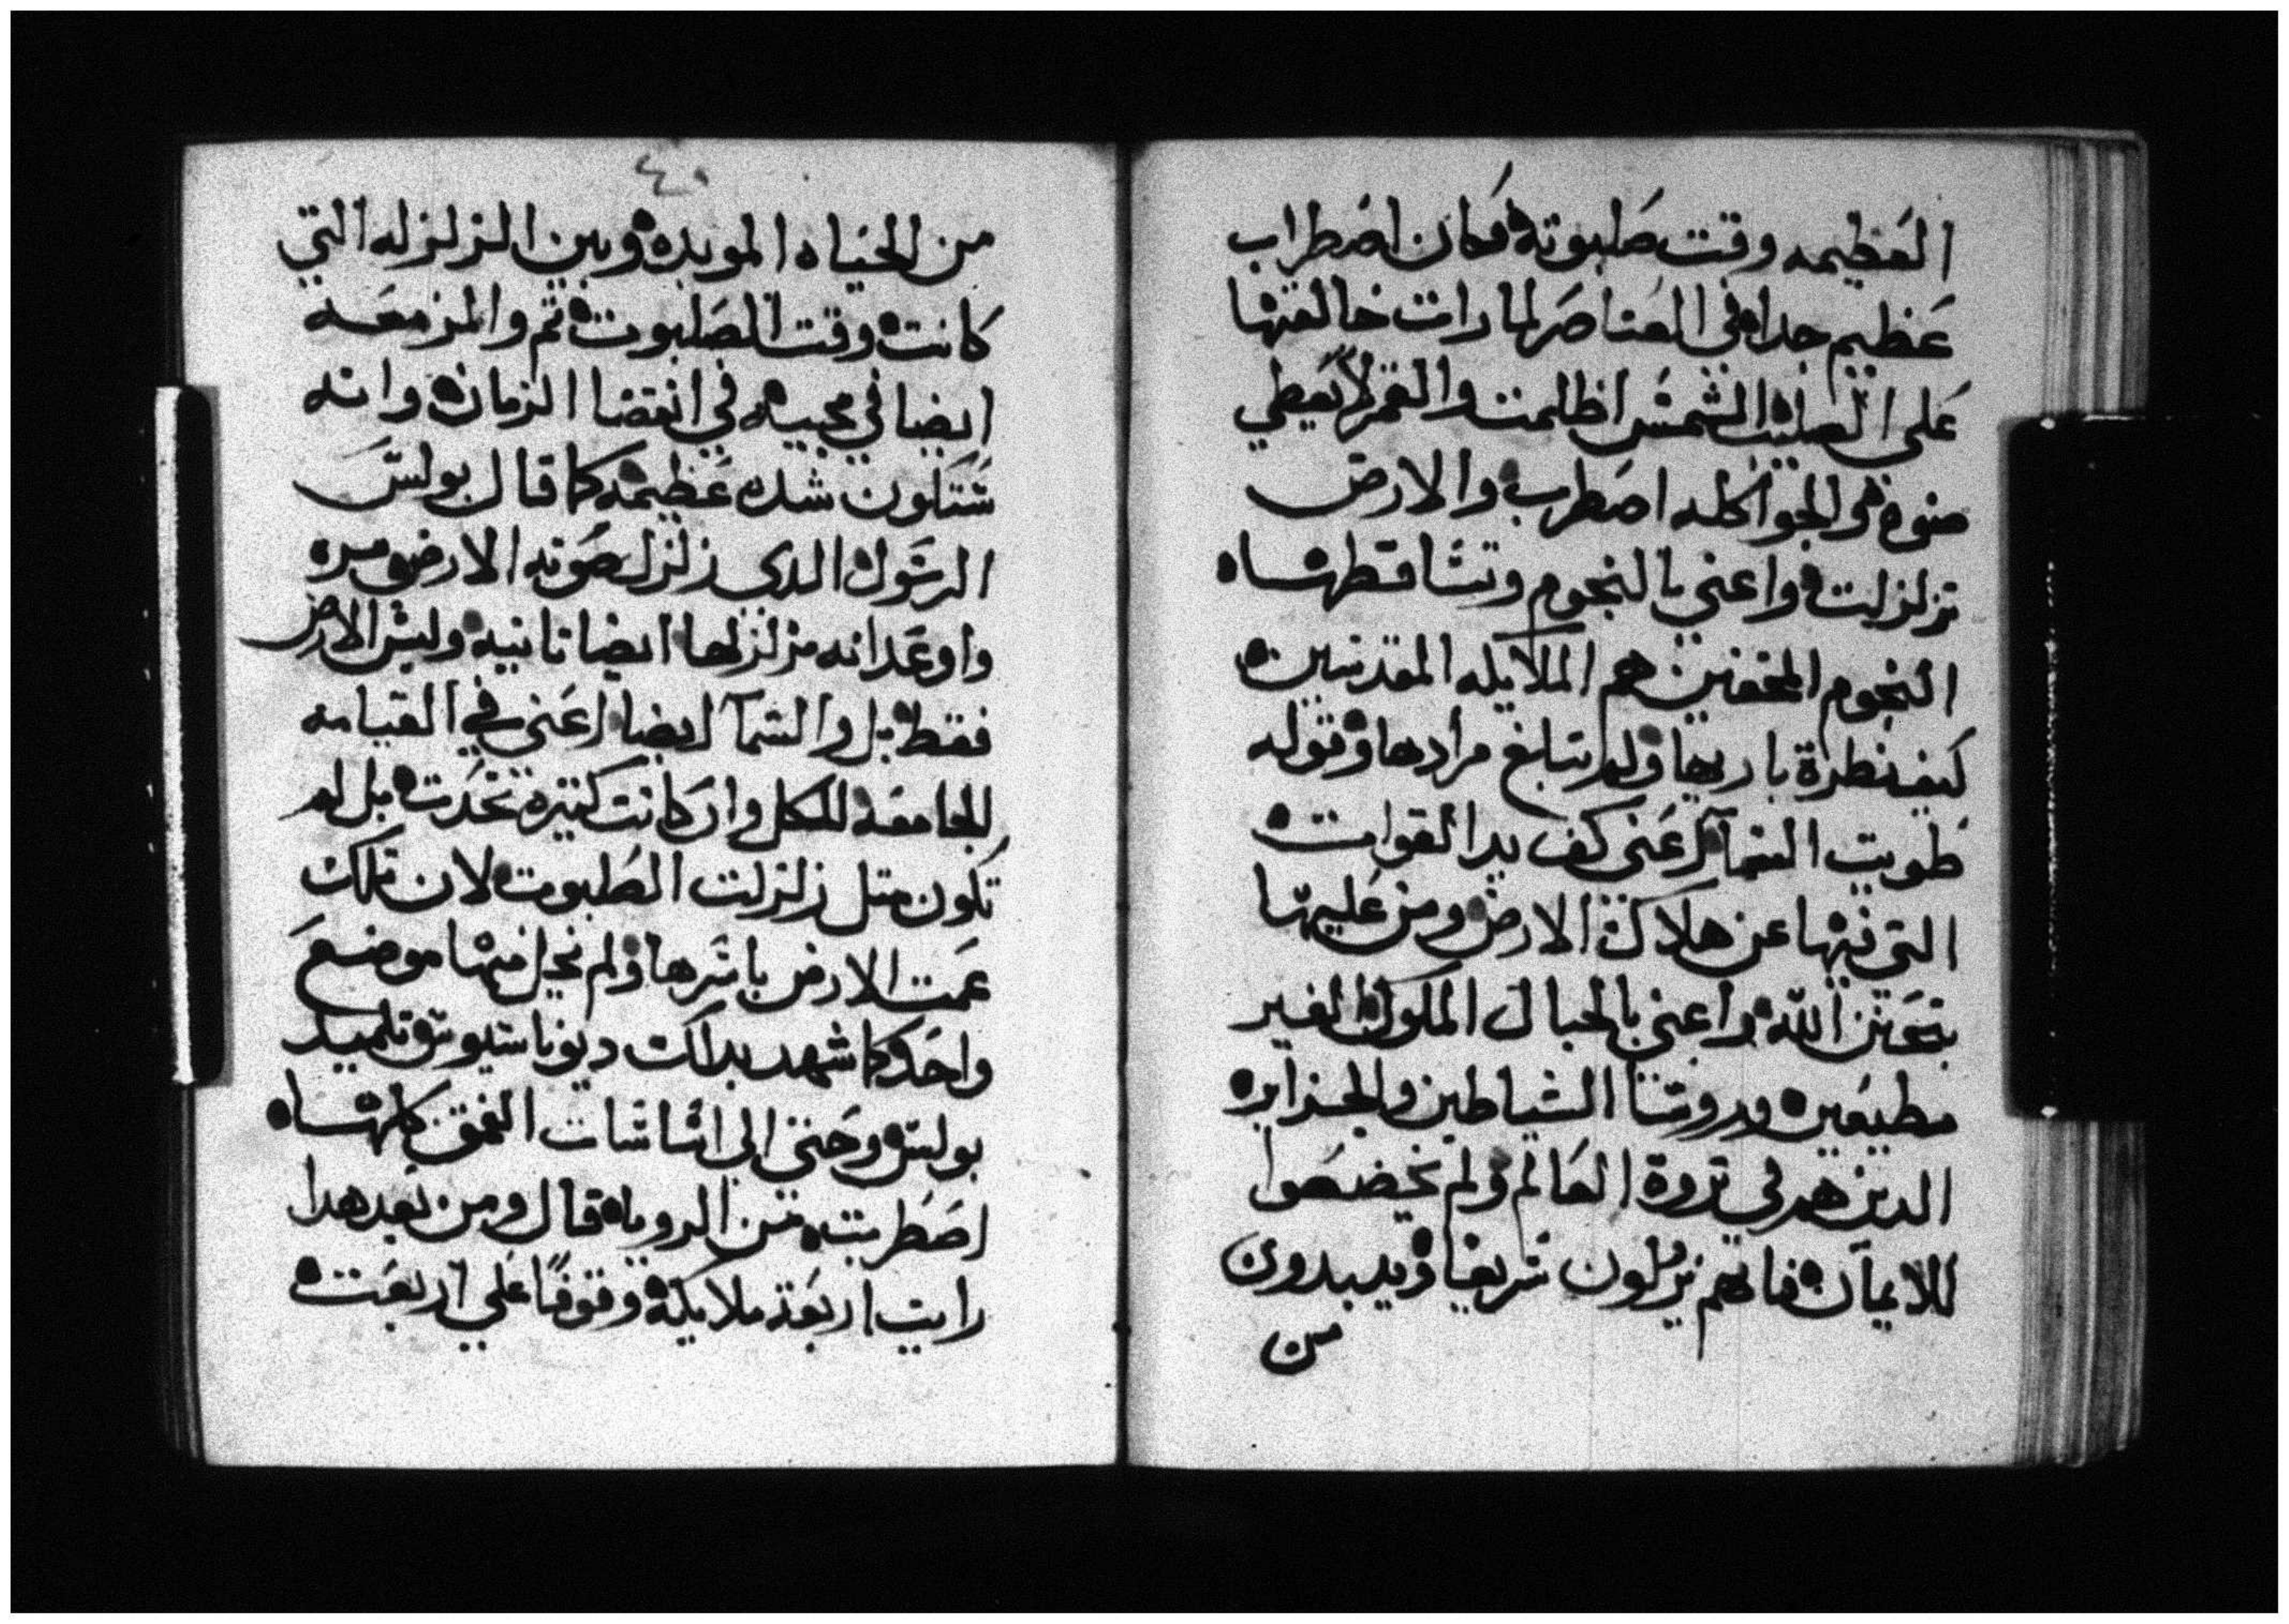 العظيمه وقت صلبوته فكان اضطراب
عظيم جدا في العناصر لما رات خالقها
على الصليب الشمس اظلمت والقمر لم يعطي
ضوه والجو كله اضطرب والارض
تزلزلت واعني بالنجوم وتساقطها
النجوم المحقين هم الملايكه المقدسين
كيف نظرة باريها ولم تبلغ مرادها وقوله
طويت السمآ اعني كف يد القوات
التي فيها عن هلاك الارض ومن عليها
بتحنن الله واعني بالجبال الملوك الغير
مطيعين وروسا الشياطين والجزاير
الدين هم في تروة العالم ولم يخضعوا
للايمان فانهم يزلون سريعا ويبيدون
من
٤٠
من الحياه الموبده وبين الزلزله التي
كانت وقت الصلبوت تم والمزمعه
ايضا في مجييه في انقضا الزمان وانه
ستكون شده عظيمه كما قال بولس
الرسول الدي زلزل صوته الارض مره
واوعد انه مزلزلها ايضا تانيه وليس الارض
فقط بل والسمآ ايضا اعني في القيامه
الجامعه للكل وان كانت كتيره تحدت بل لم
تكون متل زلزلت الصلبوت لان تلك
عمت الارض باسرها ولم يخل منها موضع
واحد كما شهد بدلك ديوناسيوس تلميد
بولس وحتى الى اساسات العمق كلها
اضطربت من الرويا قال ومن بعد هدا
رايت اربعة ملايكة وقوفا على اربعت